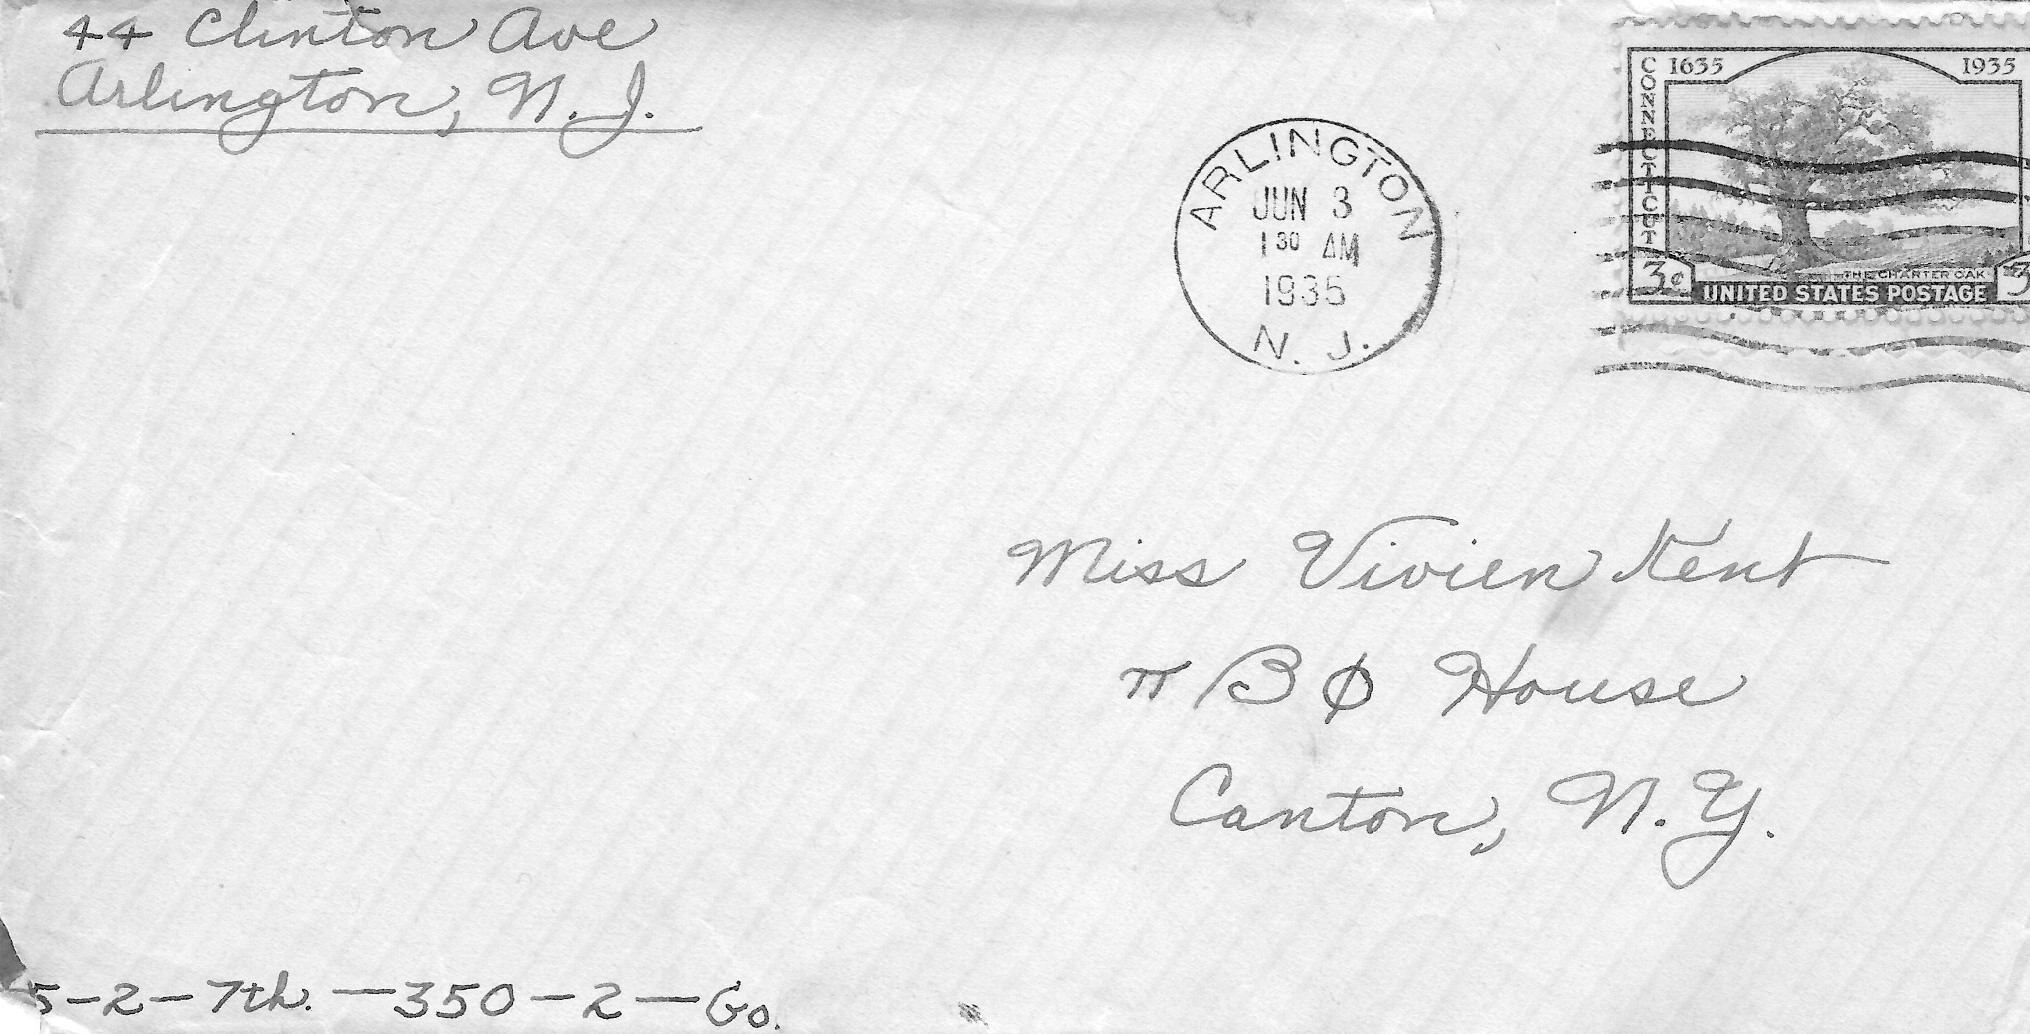 44 Clinton Ave
Arlington, N. J.
ARLINGTON
JUN 3
1 30 AM
1935
N. J.
1635 1935
CONNECTICUT
THE CHARTER OAK
3¢ UNITED STATES POSTAGE 3
Miss Vivien Kent
π B ϕ House
Canton, N. Y.
5-2-7th.-350-2-Go.